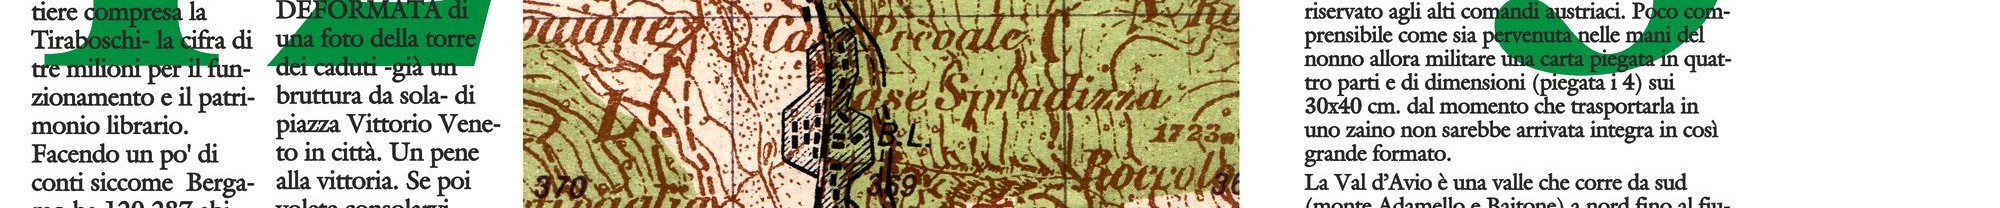 tiere compresa la
Tiraboschi- la cifra di
tre milioni per il fun-
zionamento e il patri-
monio librario.
Facendo un po' di
conti siccome Berga-
DEFORMATA di
una foto della torre
dei caduti -già un
bruttura da sola- di
piazza Vittorio Vene-
to in città. Un pene
alla vittoria. Se poi
volete consolarvi
Spradizza
B.L.
1723
370
369
riservato agli alti comandi austriaci. Poco com-
prensibile come sia pervenuta nelle mani del
nonno allora militare una carta piegata in quat-
tro parti e di dimensioni (piegata i 4) sui
30x40 cm. dal momento che trasportarla in
uno zaino non sarebbe arrivata integra in così
grande formato.
La Val d'Avio è una valle che corre da sud
(monte Adamello e Baitone) a nord fino al fiu-